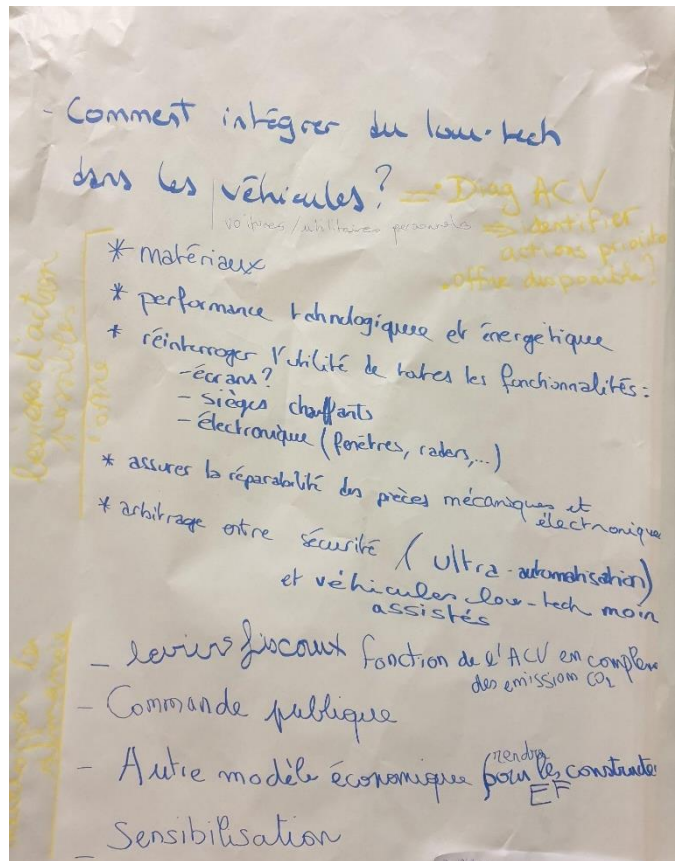 - Comment intégrer du low-tech
dans les véhicules? => Diag ACV
voitures/utilitaires personnels => identifier
actions priorita
offre disponible?
leviers d'action
possibles
offre
* matériaux
* performance technologique et énergétique
* réinterroger l'utilité de toutes les fonctionnalités:
- écrans?
- sièges chauffants
- électronique (fenêtres, radars,...)
* assurer la réparabilité des pièces mécaniques et
électronique
* arbitrage entre sécurité (ultra-automatisation)
et véhicules low-tech moin
assistés
- leviers fiscaux fonction de l'ACV en complem
des emission CO2
- Commande publique
- Autre modèle économique pour les constructe
rendre
EF
- Sensibilisation